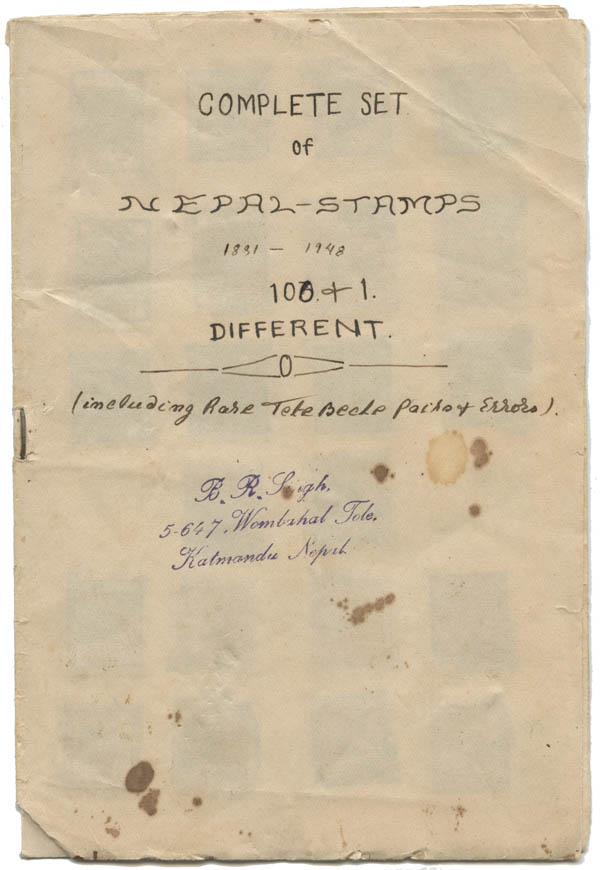 COMPLETE SET.
of
NEPAL-STAMPS
1881 - 1948
100. & 1.
DIFFERENT.
(including Rare Tete Beche Pairs & Errors).
B. R. Singh,
5-647, Wombahal Tole,
Katmandu Nepal.